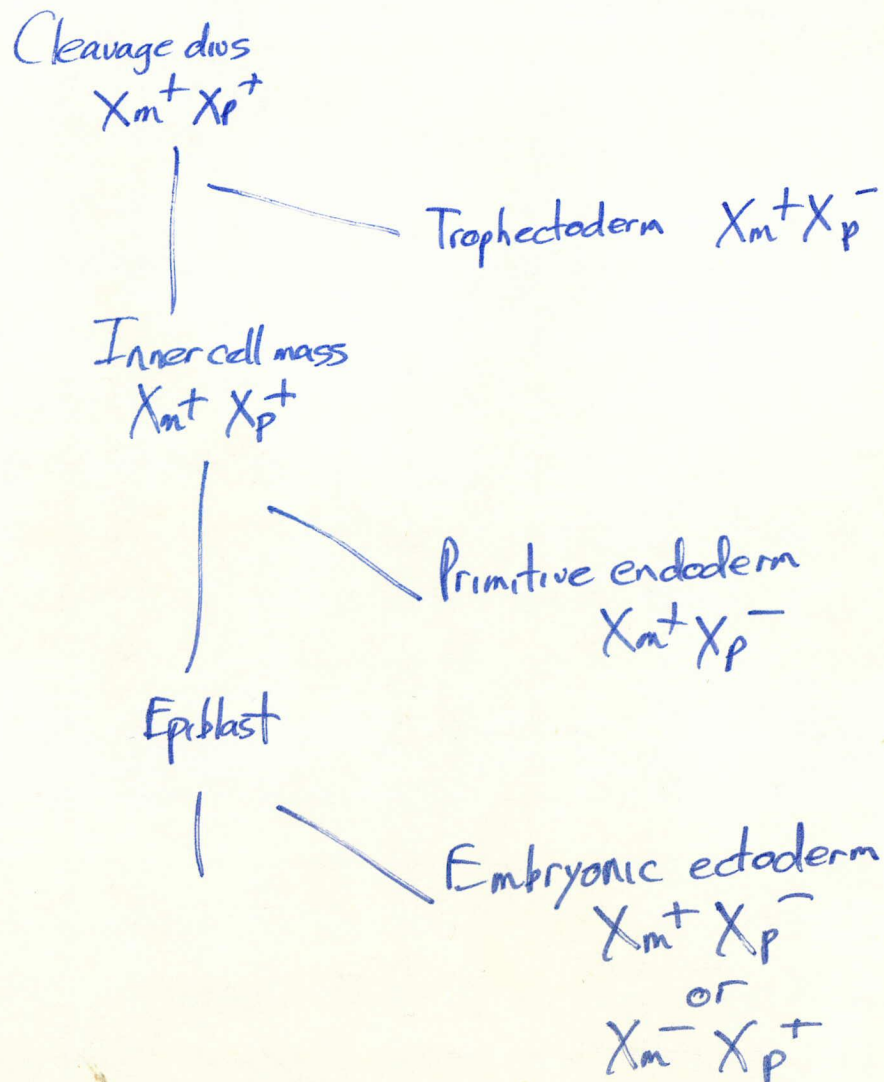 Cleavage divs
Xm+ Xp+
Trophectoderm Xm+ Xp-
Inner cell mass
Xm+ Xp+
Primitive endoderm
Xm+ Xp-
Epiblast
Embryonic ectoderm
Xm+ Xp-
or
Xm- Xp+